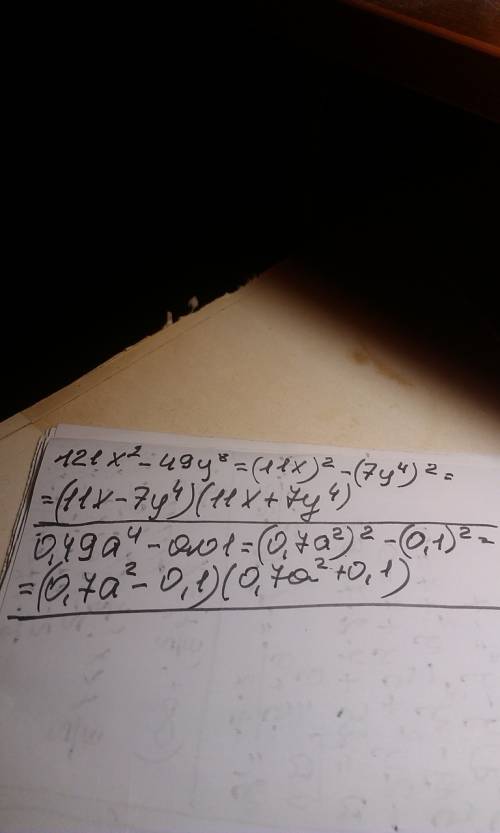 121x² - 49y⁸ = (11x)² - (7y⁴)² =
= (11x - 7y⁴)(11x + 7y⁴)
0,49a⁴ - 0,01 = (0,7a²)² - (0,1)² =
= (0,7a² - 0,1)(0,7a² + 0,1)